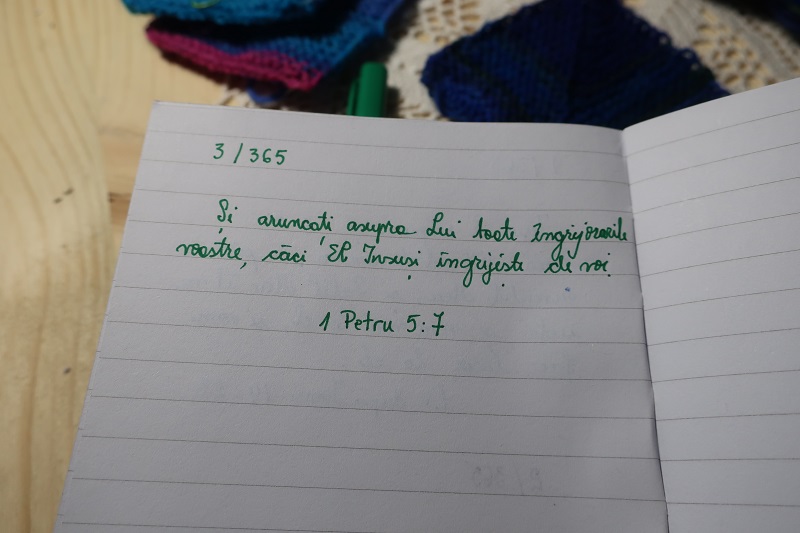 3/365
Și aruncați asupra Lui toate îngrijorările
voastre, căci El Însuși îngrijește de voi.
1 Petru 5:7